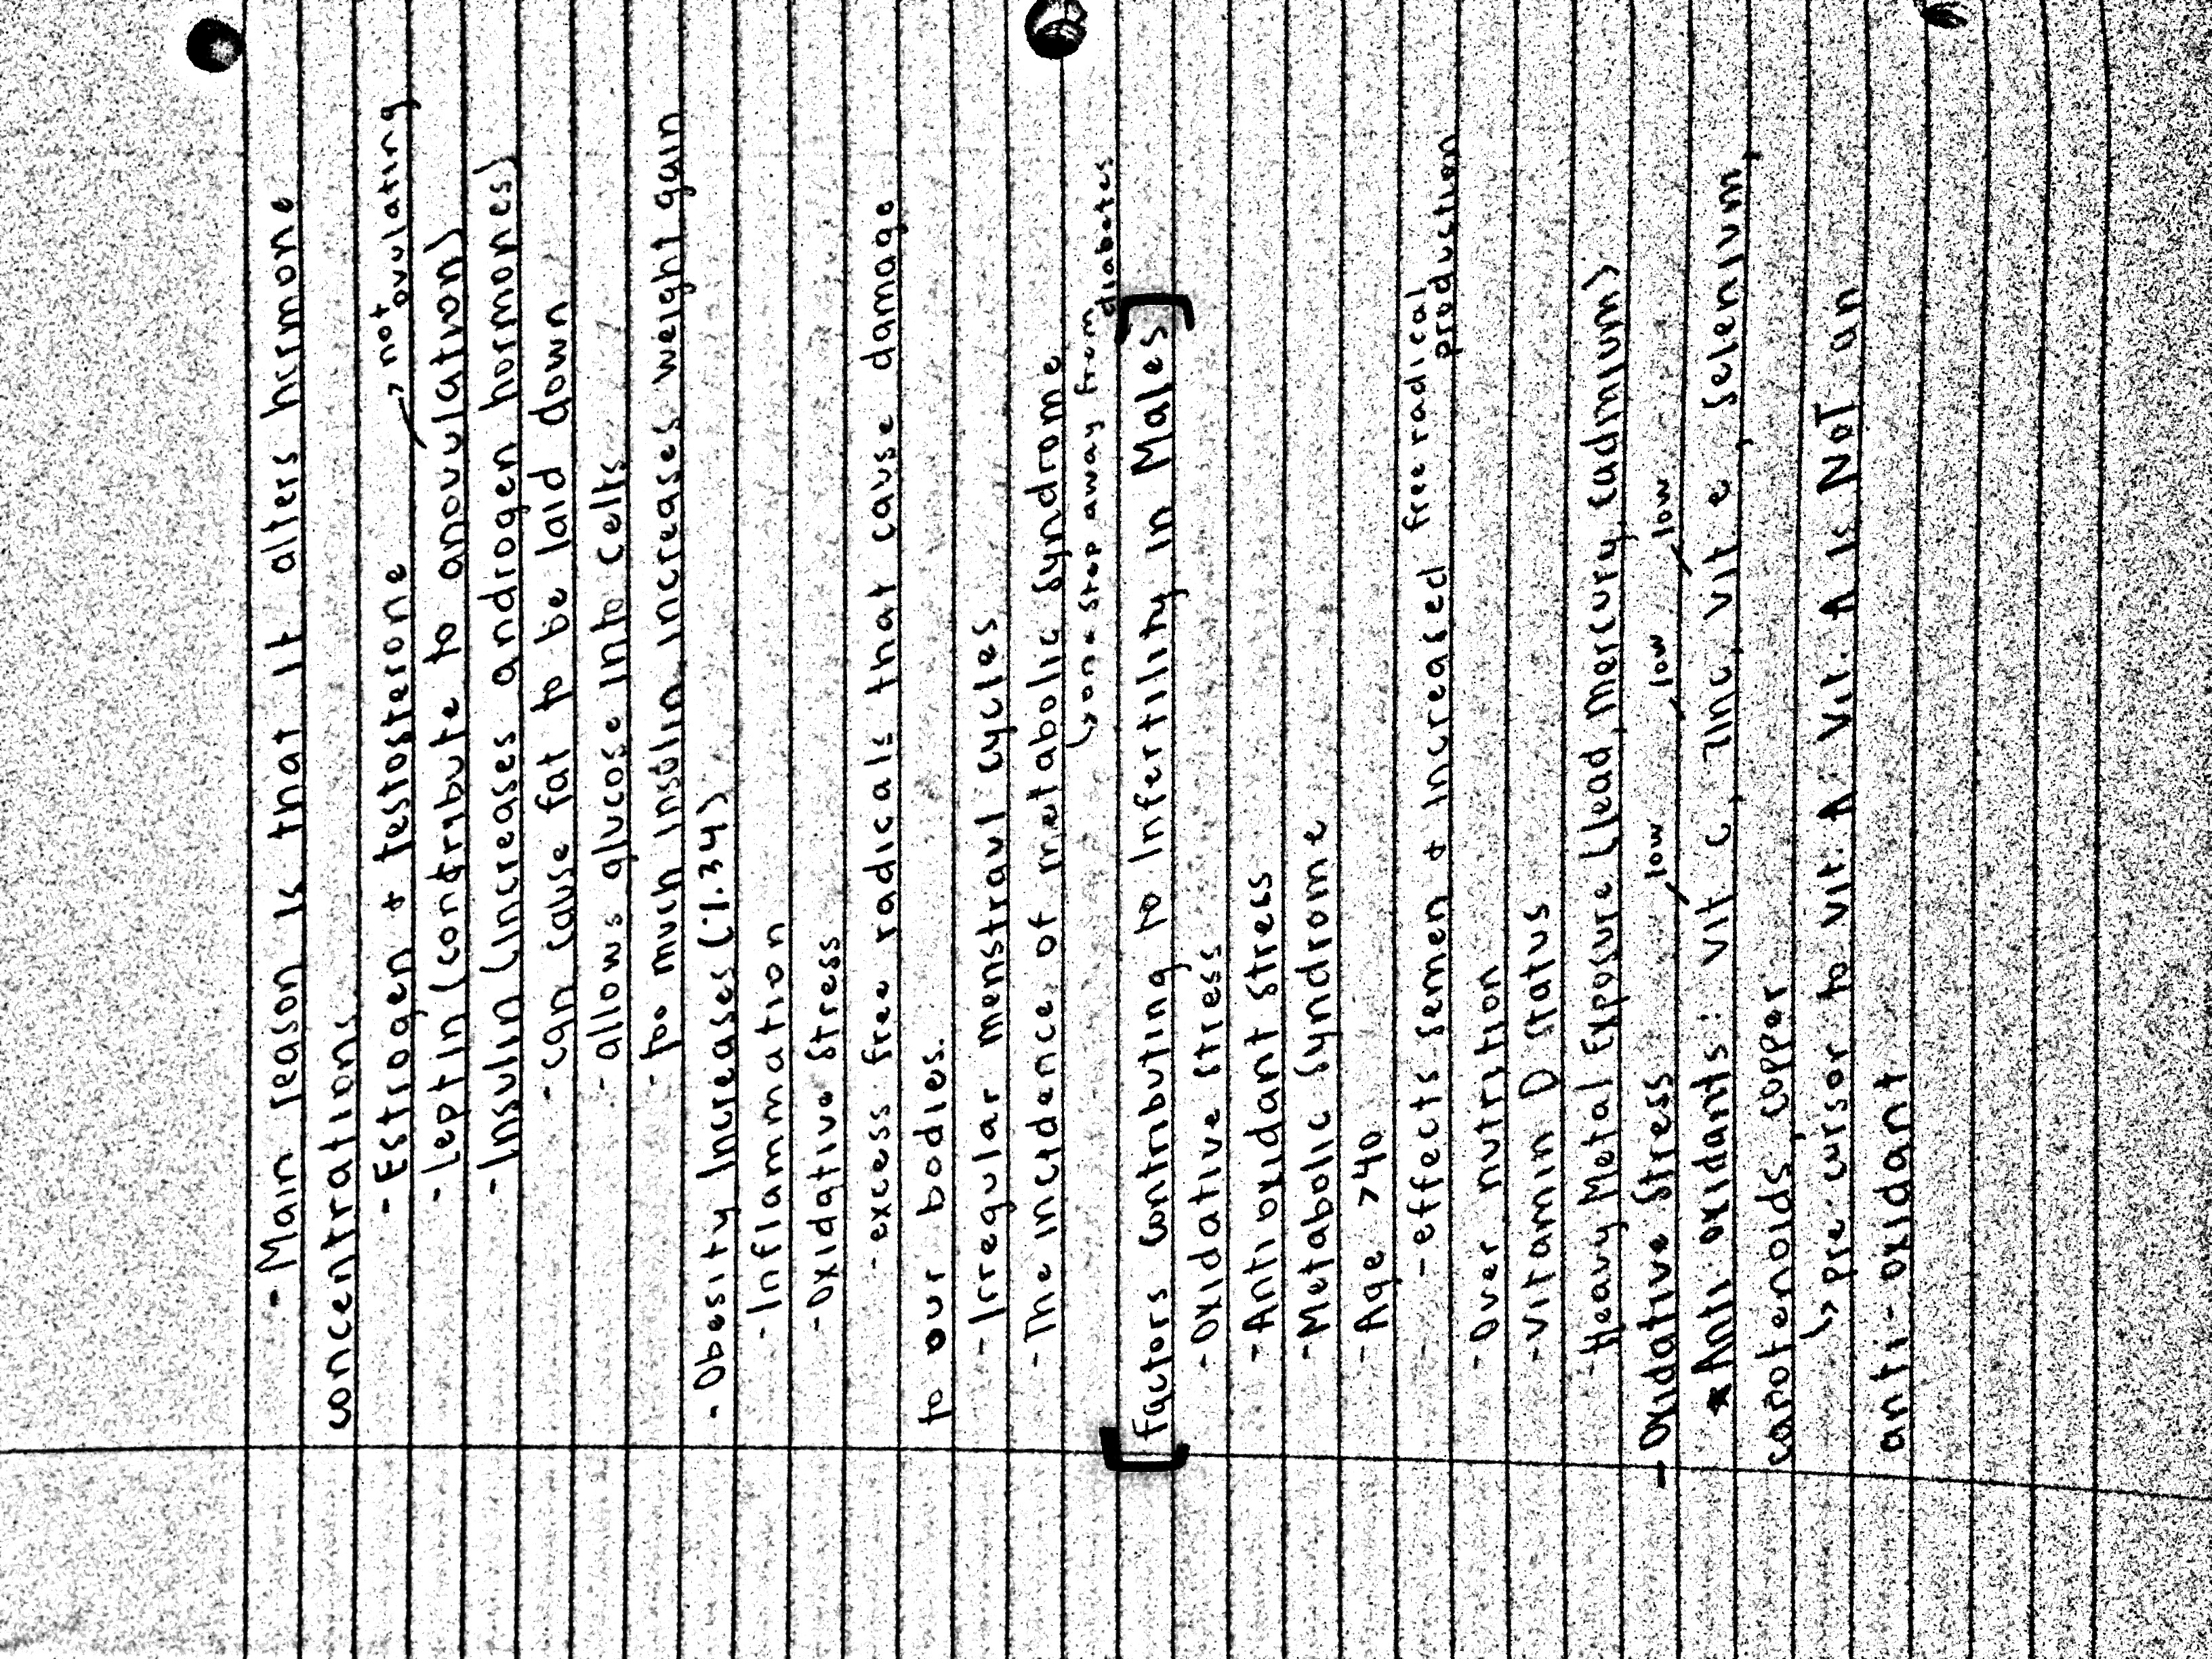 - Main reason is that it alters hormone
concentrations.
- Estrogen + testosterone
→ not ovulating
- Leptin (contribute to anovulation)
- Insulin (increases androgen hormones)
- can cause fat to be laid down
- allows glucose into cells
- too much insulin, increases weight gain
- Obesity Increases (1.34)
- Inflammation
- Oxidative Stress
- excess free radicals that cause damage
to our bodies.
- Irregular menstraul cycles
- The incidence of metabolic syndrome
↳ one step away from diabetes
[Factors Contributing to Infertility in Males]
- Oxidative Stress
- Anti oxidant Stress
- Metabolic Syndrome
- Age >40
- effects semen + increased free radical production
- Over nutrition
- Vitamin D Status
- Heavy Metal Exposure (lead, mercury, cadmium)
- Oxidative Stress
low low low
* Anti oxidants: vit c, zinc, vit e, selenium,
carotenoids, copper
↳ pre-cursor to vit. A. Vit. A is NOT an
anti-oxidant